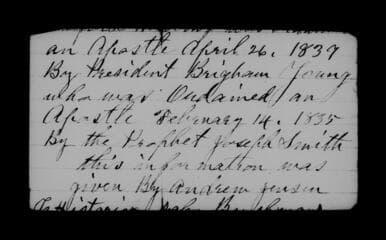 an Apostle April 26, 1839
By President Brigham Young
who was Ordained an
Apostle February 14, 1835
By the Prophet Joseph Smith
this information was
given By Andrew Jensen